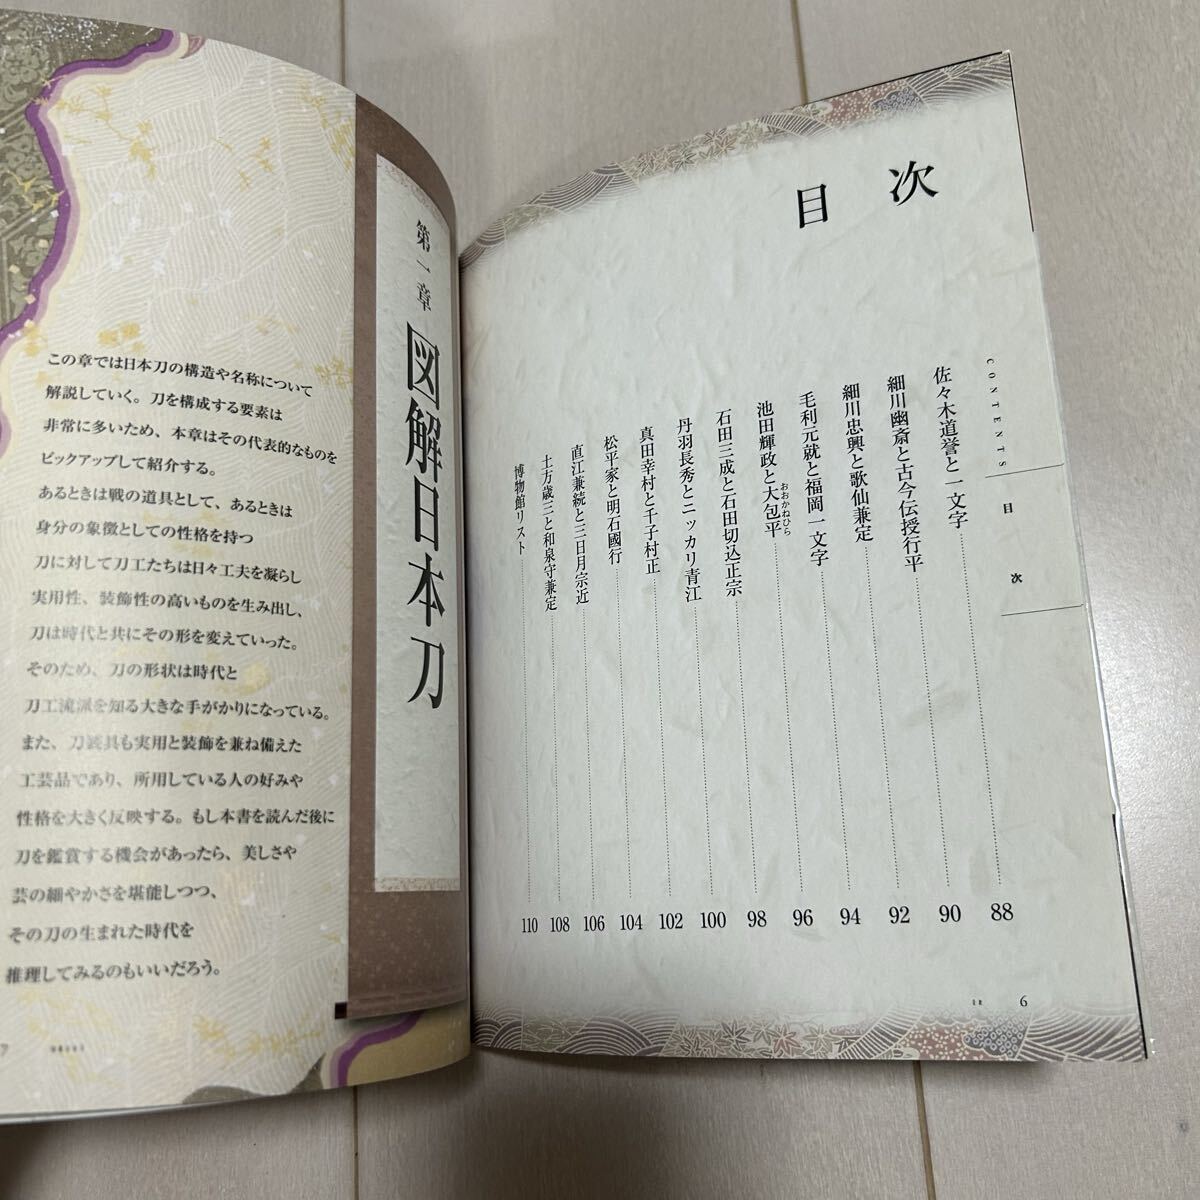 目次
CONTENTS
目次
佐々木道誉と一文字 88
細川幽斎と古今伝授行平 90
細川忠興と歌仙兼定 92
毛利元就と福岡一文字 94
池田輝政と大包平 96
おおかねひら
石田三成と石田切込正宗 98
丹羽長秀とニッカリ青江 100
真田幸村と千子村正 102
松平家と明石國行 104
直江兼続と三日月宗近 106
土方歳三と和泉守兼定 108
博物館リスト 110
6
第一章
図解日本刀
この章では日本刀の構造や名称について
解説していく。刀を構成する要素は
非常に多いため、本章はその代表的なものを
ピックアップして紹介する。
あるときは戦の道具として、あるときは
身分の象徴としての性格を持つ
刀に対して刀工たちは日々工夫を凝らし
実用性、装飾性の高いものを生み出し、
刀は時代と共にその形を変えていった。
そのため、刀の形状は時代と
刀工流派を知る大きな手がかりになっている。
また、刀装具も実用と装飾を兼ね備えた
工芸品であり、所用している人の好みや
性格を大きく反映する。もし本書を読んだ後に
刀を鑑賞する機会があったら、美しさや
芸の細やかさを堪能しつつ、
その刀の生まれた時代を
推理してみるのもいいだろう。
7